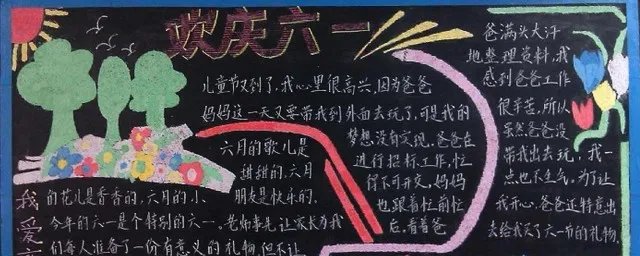 欢庆六一
儿童节又到了，我心里很高兴，因为爸爸
妈妈这一天又要带我到外面去玩了，可是我的
梦想没有实现，爸爸在
进行招标工作，忙
得不可开交，妈妈
也跟着忙前忙
后，看着爸
爸满头大汗
地整理资料，我
感到爸爸工作
很辛苦，所以
虽然爸爸没
带我出去玩，我一
点也不生气，为了让
我开心，爸爸还特意出
去给我买了六一节的礼物。
我爱
六月的歌儿是
甜甜的，六月
的花儿是香香的，六月的小朋友是快乐的。
今年的六一是个特别的六一。老师事先让家长为我
们每人准备了一份有意义的礼物，但不让